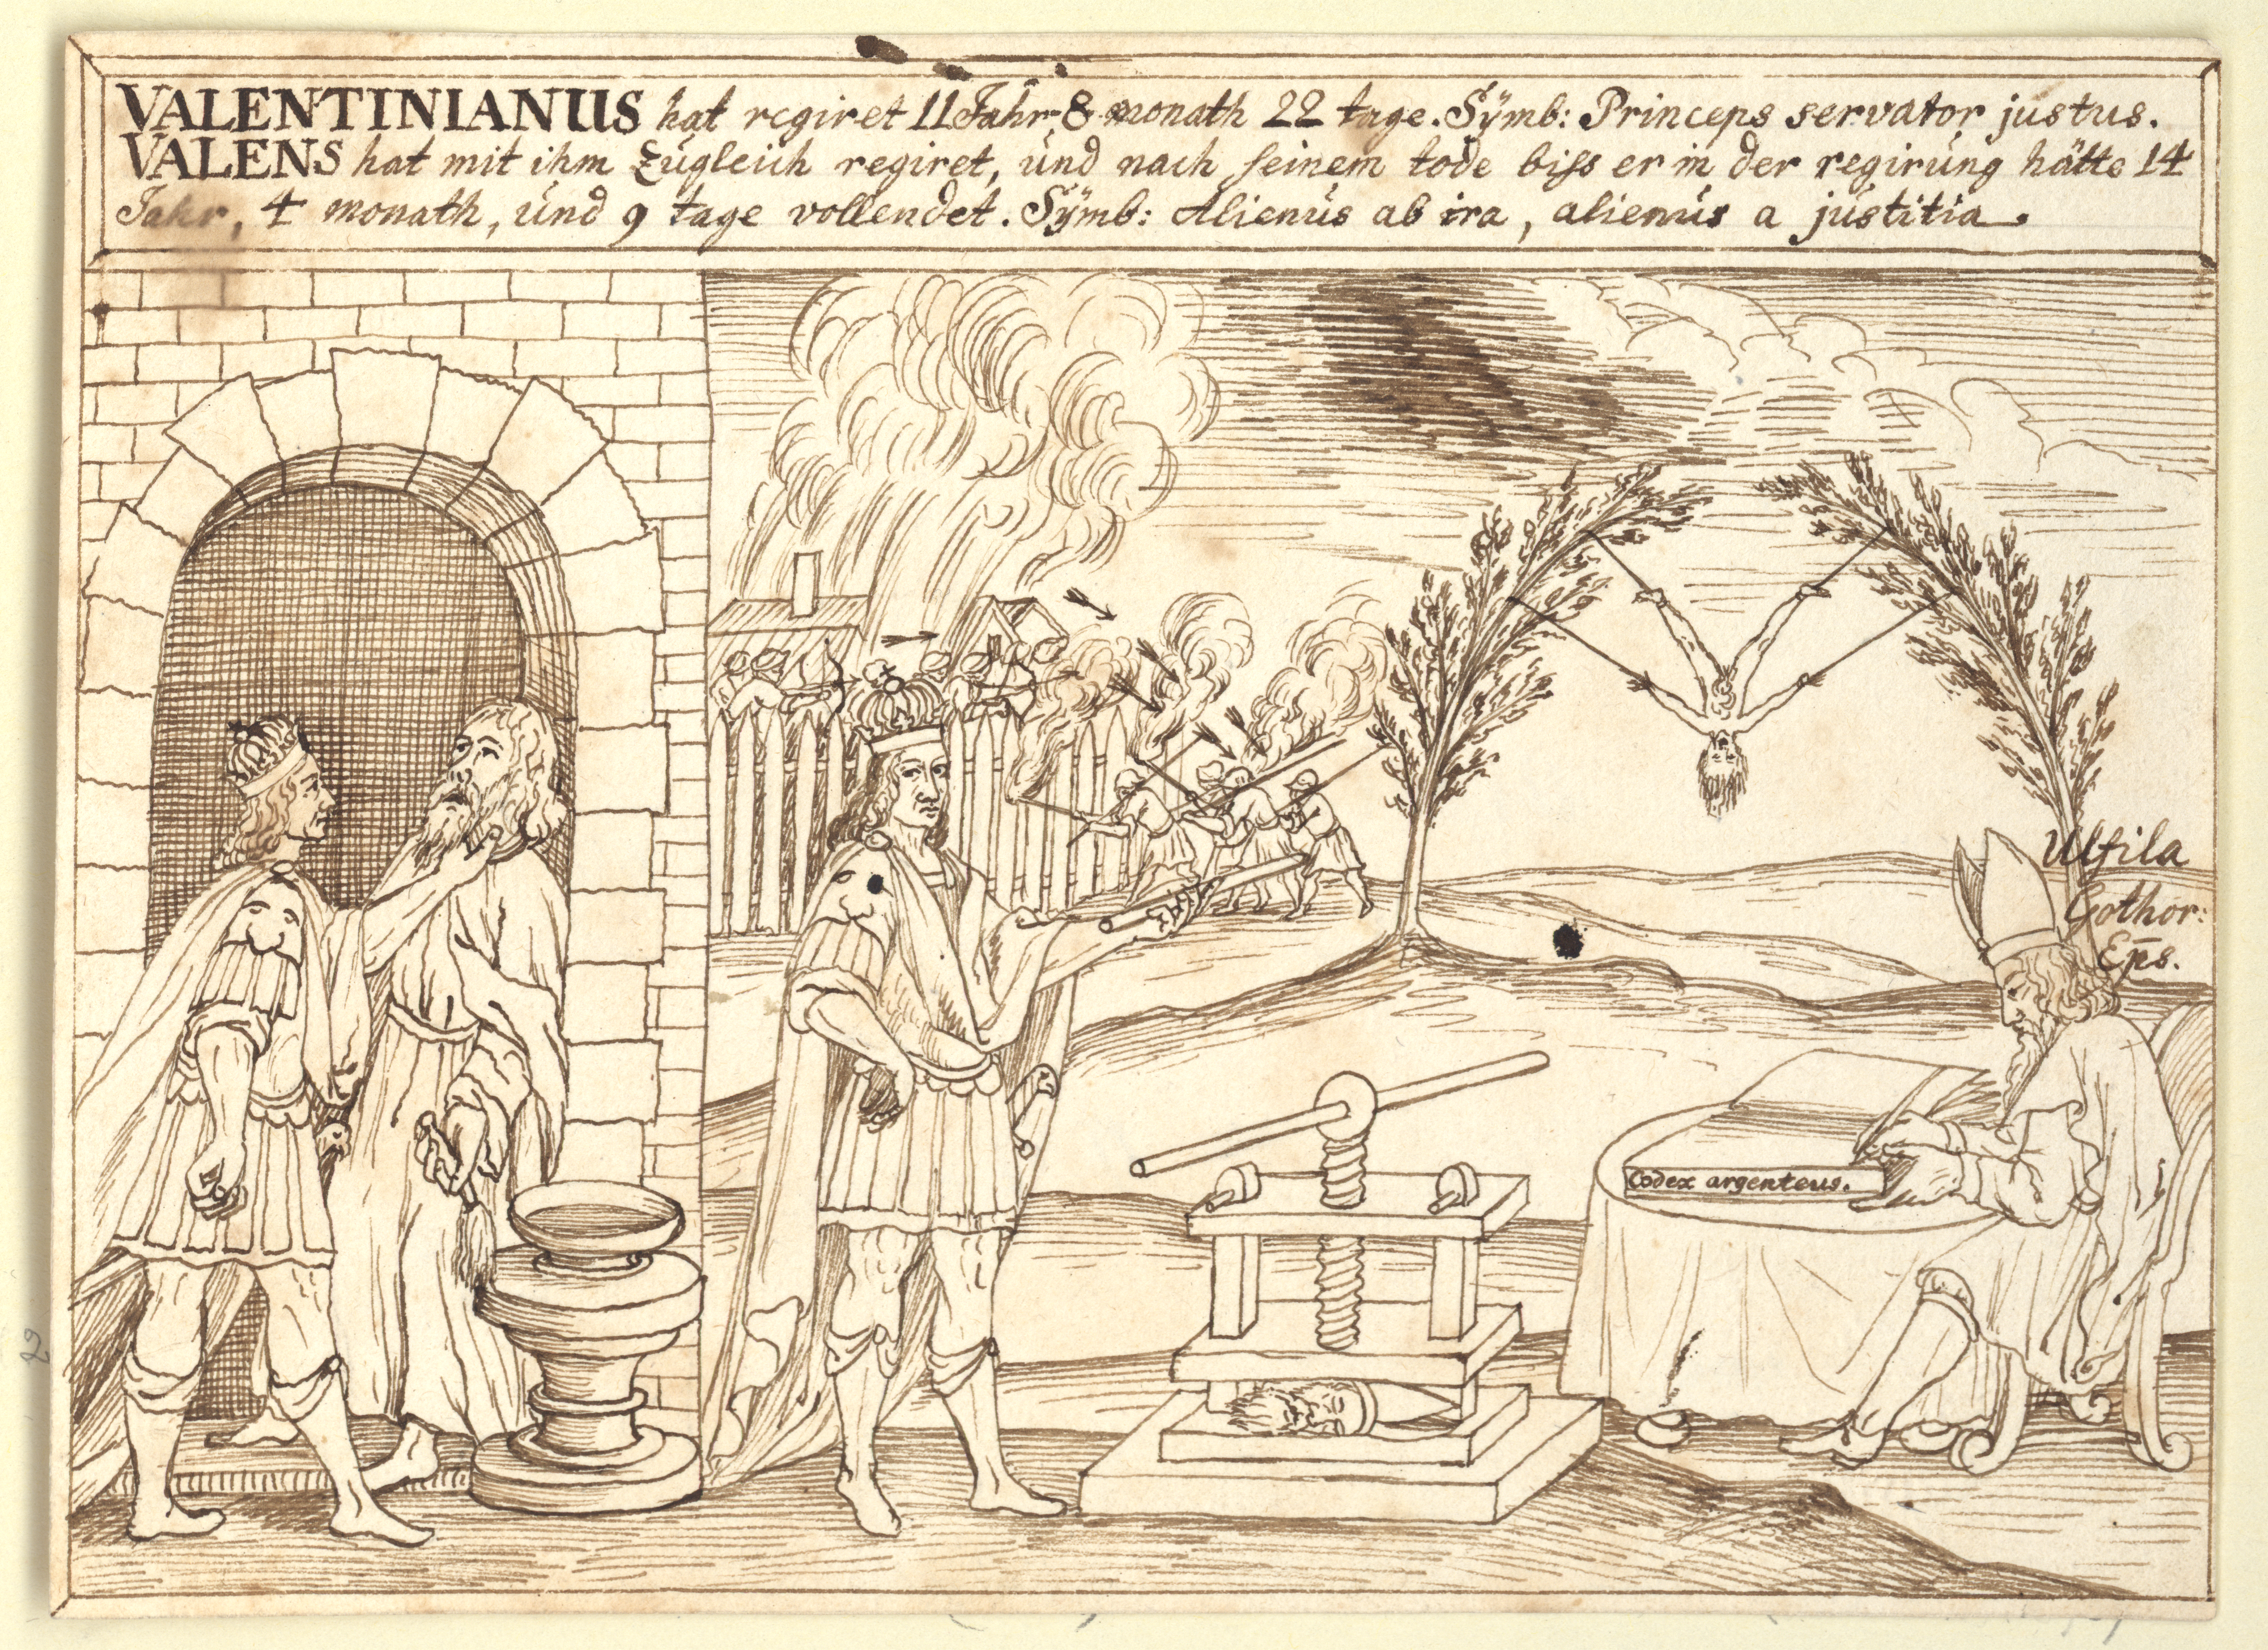 VALENTINIANUS hat regiret 11 Jahr 8 monath 22 tage. Sÿmb: Princeps servator justus.
VALENS hat mit ihm zúgleich regiret, únd nach seinem tode biss er in der regirúng hätte 14
Jahr, 4 monath, únd 9 tage vollendet. Sÿmb: Alienús ab ira, alienús a jústitia.
Ulfila
Gothor:
Eps.
Codex argenteus.
2